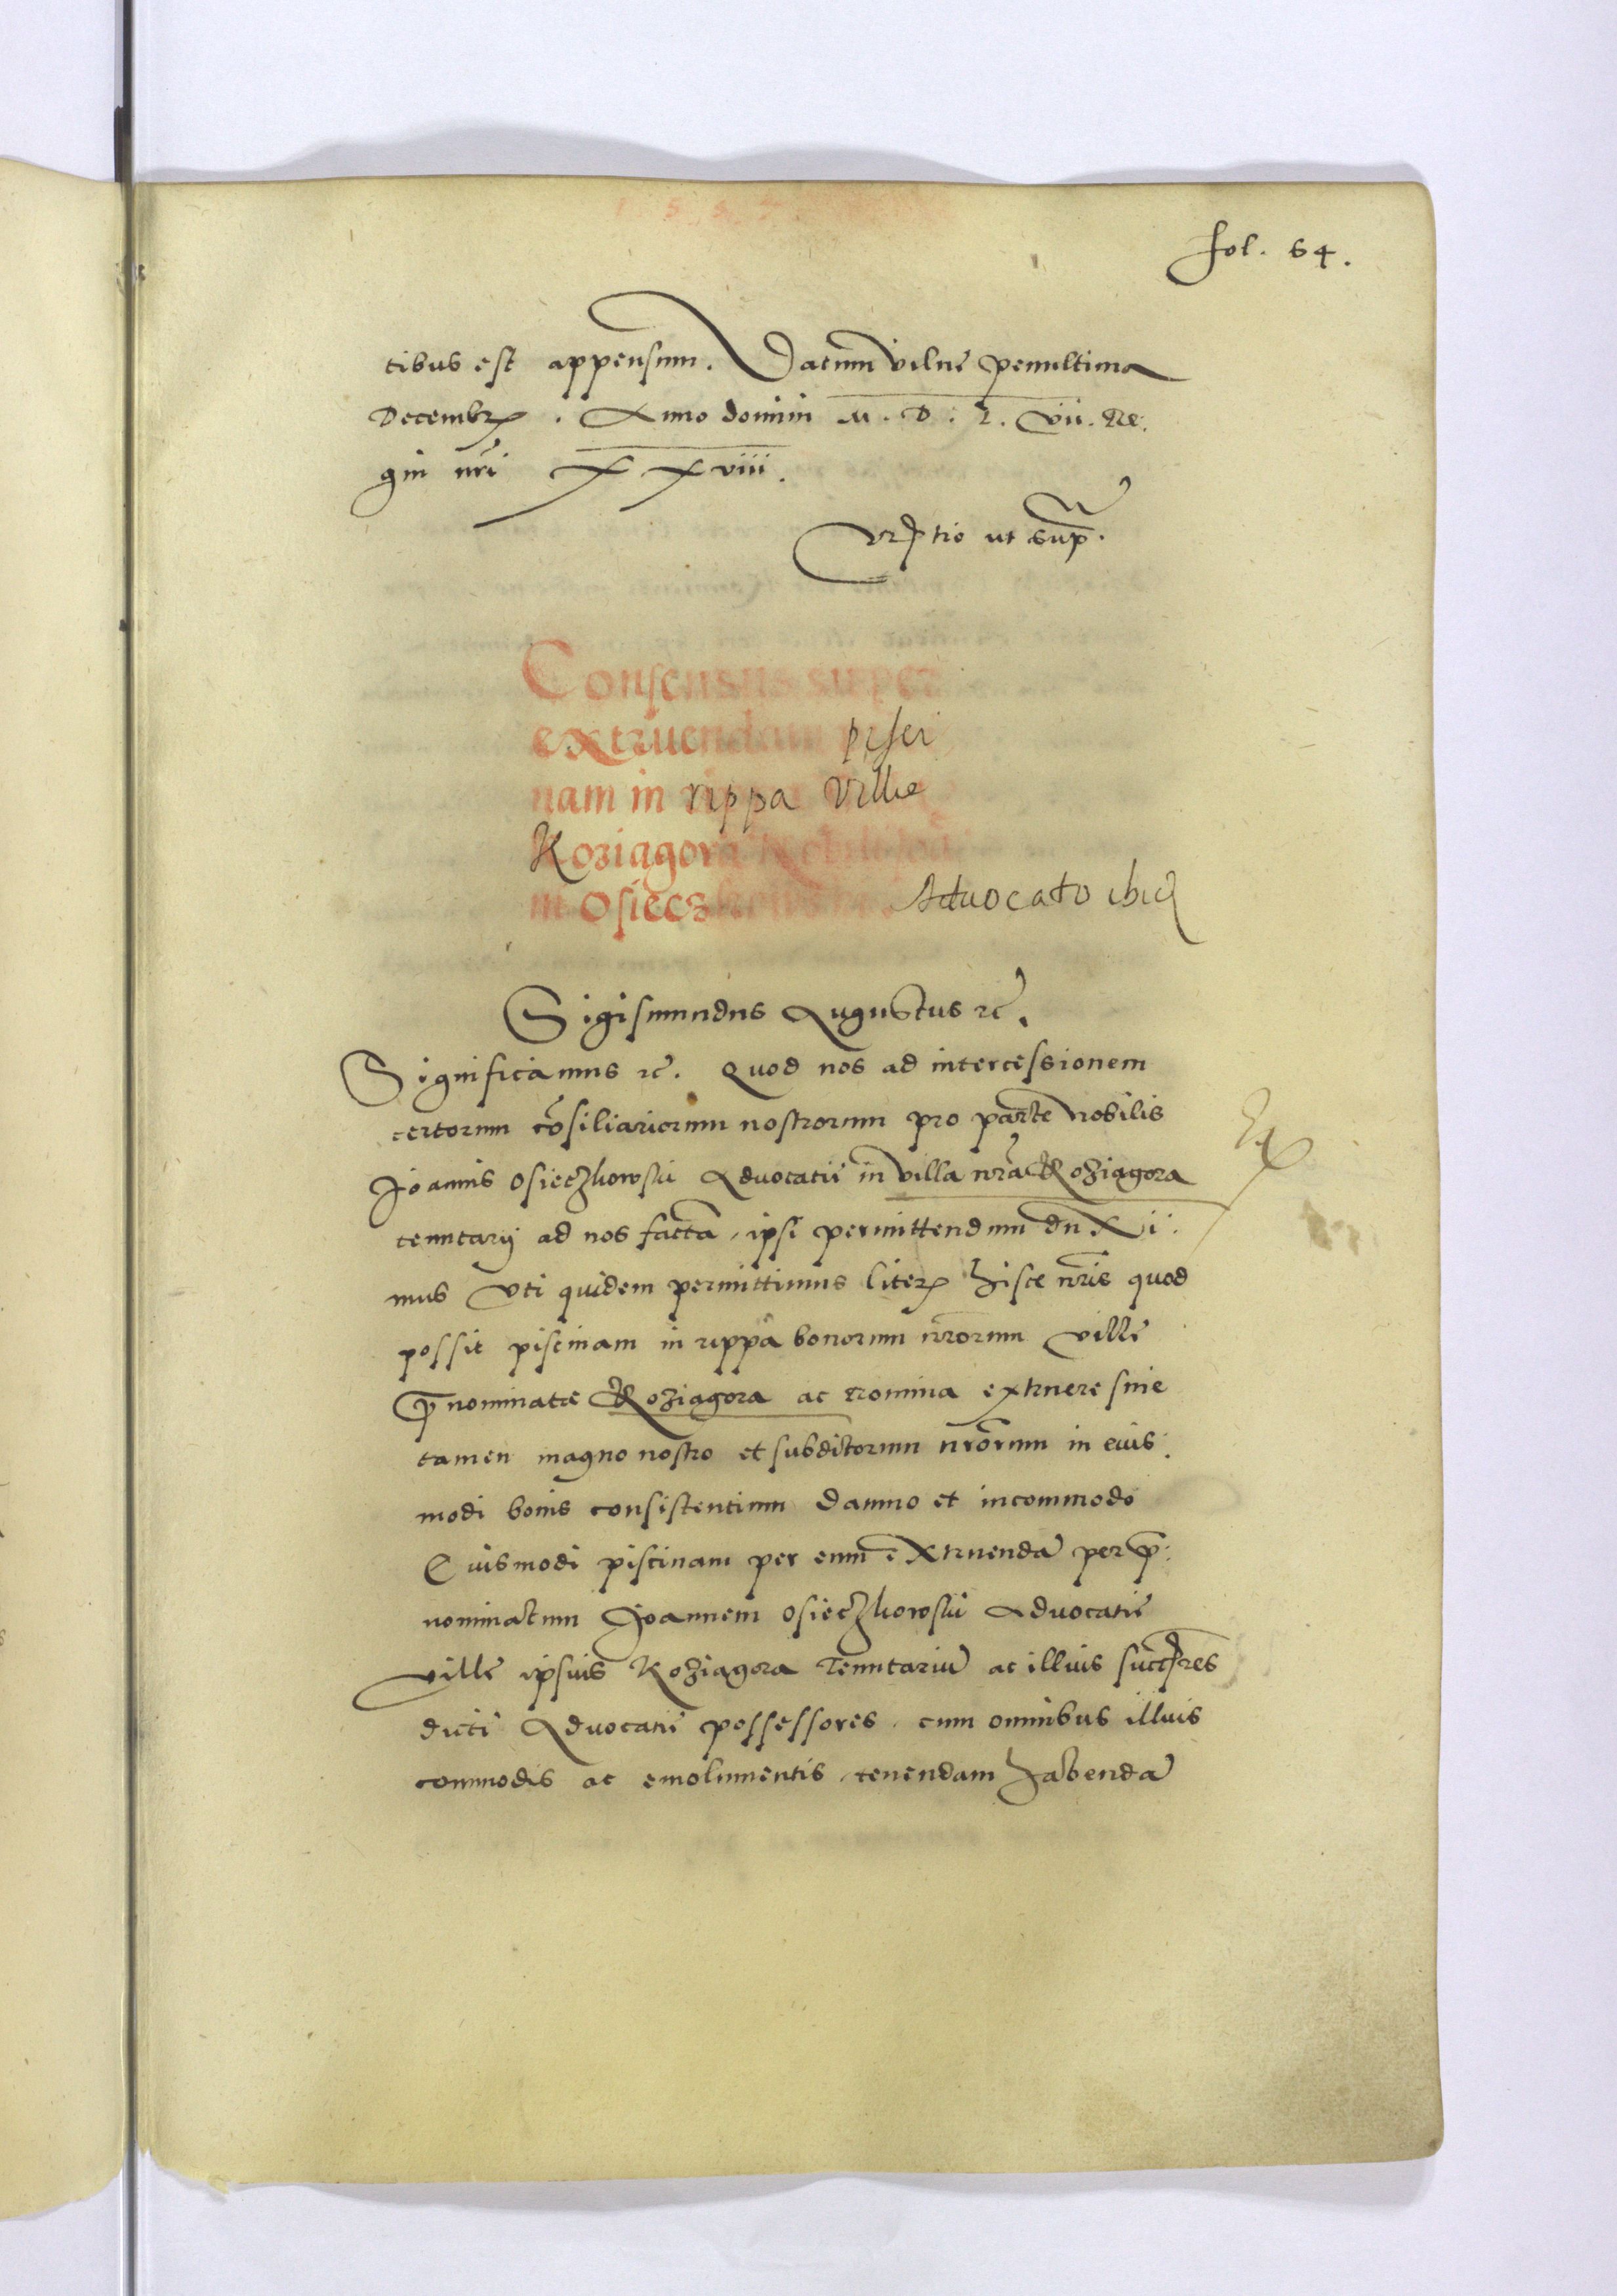 1 5 5 7
fol. 64.
tibus est appensum. Datum Vilnę penultima
Decembrꝭ. Anno domini M. D. L. vii. Re:
gni nr̃i XXviii.
Consensus super
extruendam pisci
nam in rippa Villæ
Koziagora Nobili Joã
ni Osieczkowski. Advocato ibid
Sigismundus Augustus ꝛc̃.
Significamus ꝛc̃. Quod nos ad intercessionem
certorum cõsiliariorum nostrorum pro parte nobilis
Joannis Osieczkowski Advocatię in villa nr̃a Koziagora
tenutarij ad nos factã, ipsi permittendum duxi:
mus Vti quidem permittimus literꝭ hisce nr̃is quod
possit piscinam in rippa bonorum nr̃orum villę
p̃nominatæ Koziagora ac extruere sine
tamen magno nostro et subditorum nr̃orum in eius:
modi bonis consistentium damno et incommodo
Euismodi piscinam per eum extruendã per p̃:
nominatum Joannem Osieczkowski Advocatię
villę ipsius Koziagora Tenutariũ ac illius succ̃res
dicti Advocatię possessores, cum omnibus illius
commodis ac emolumentis, tenendam habendã